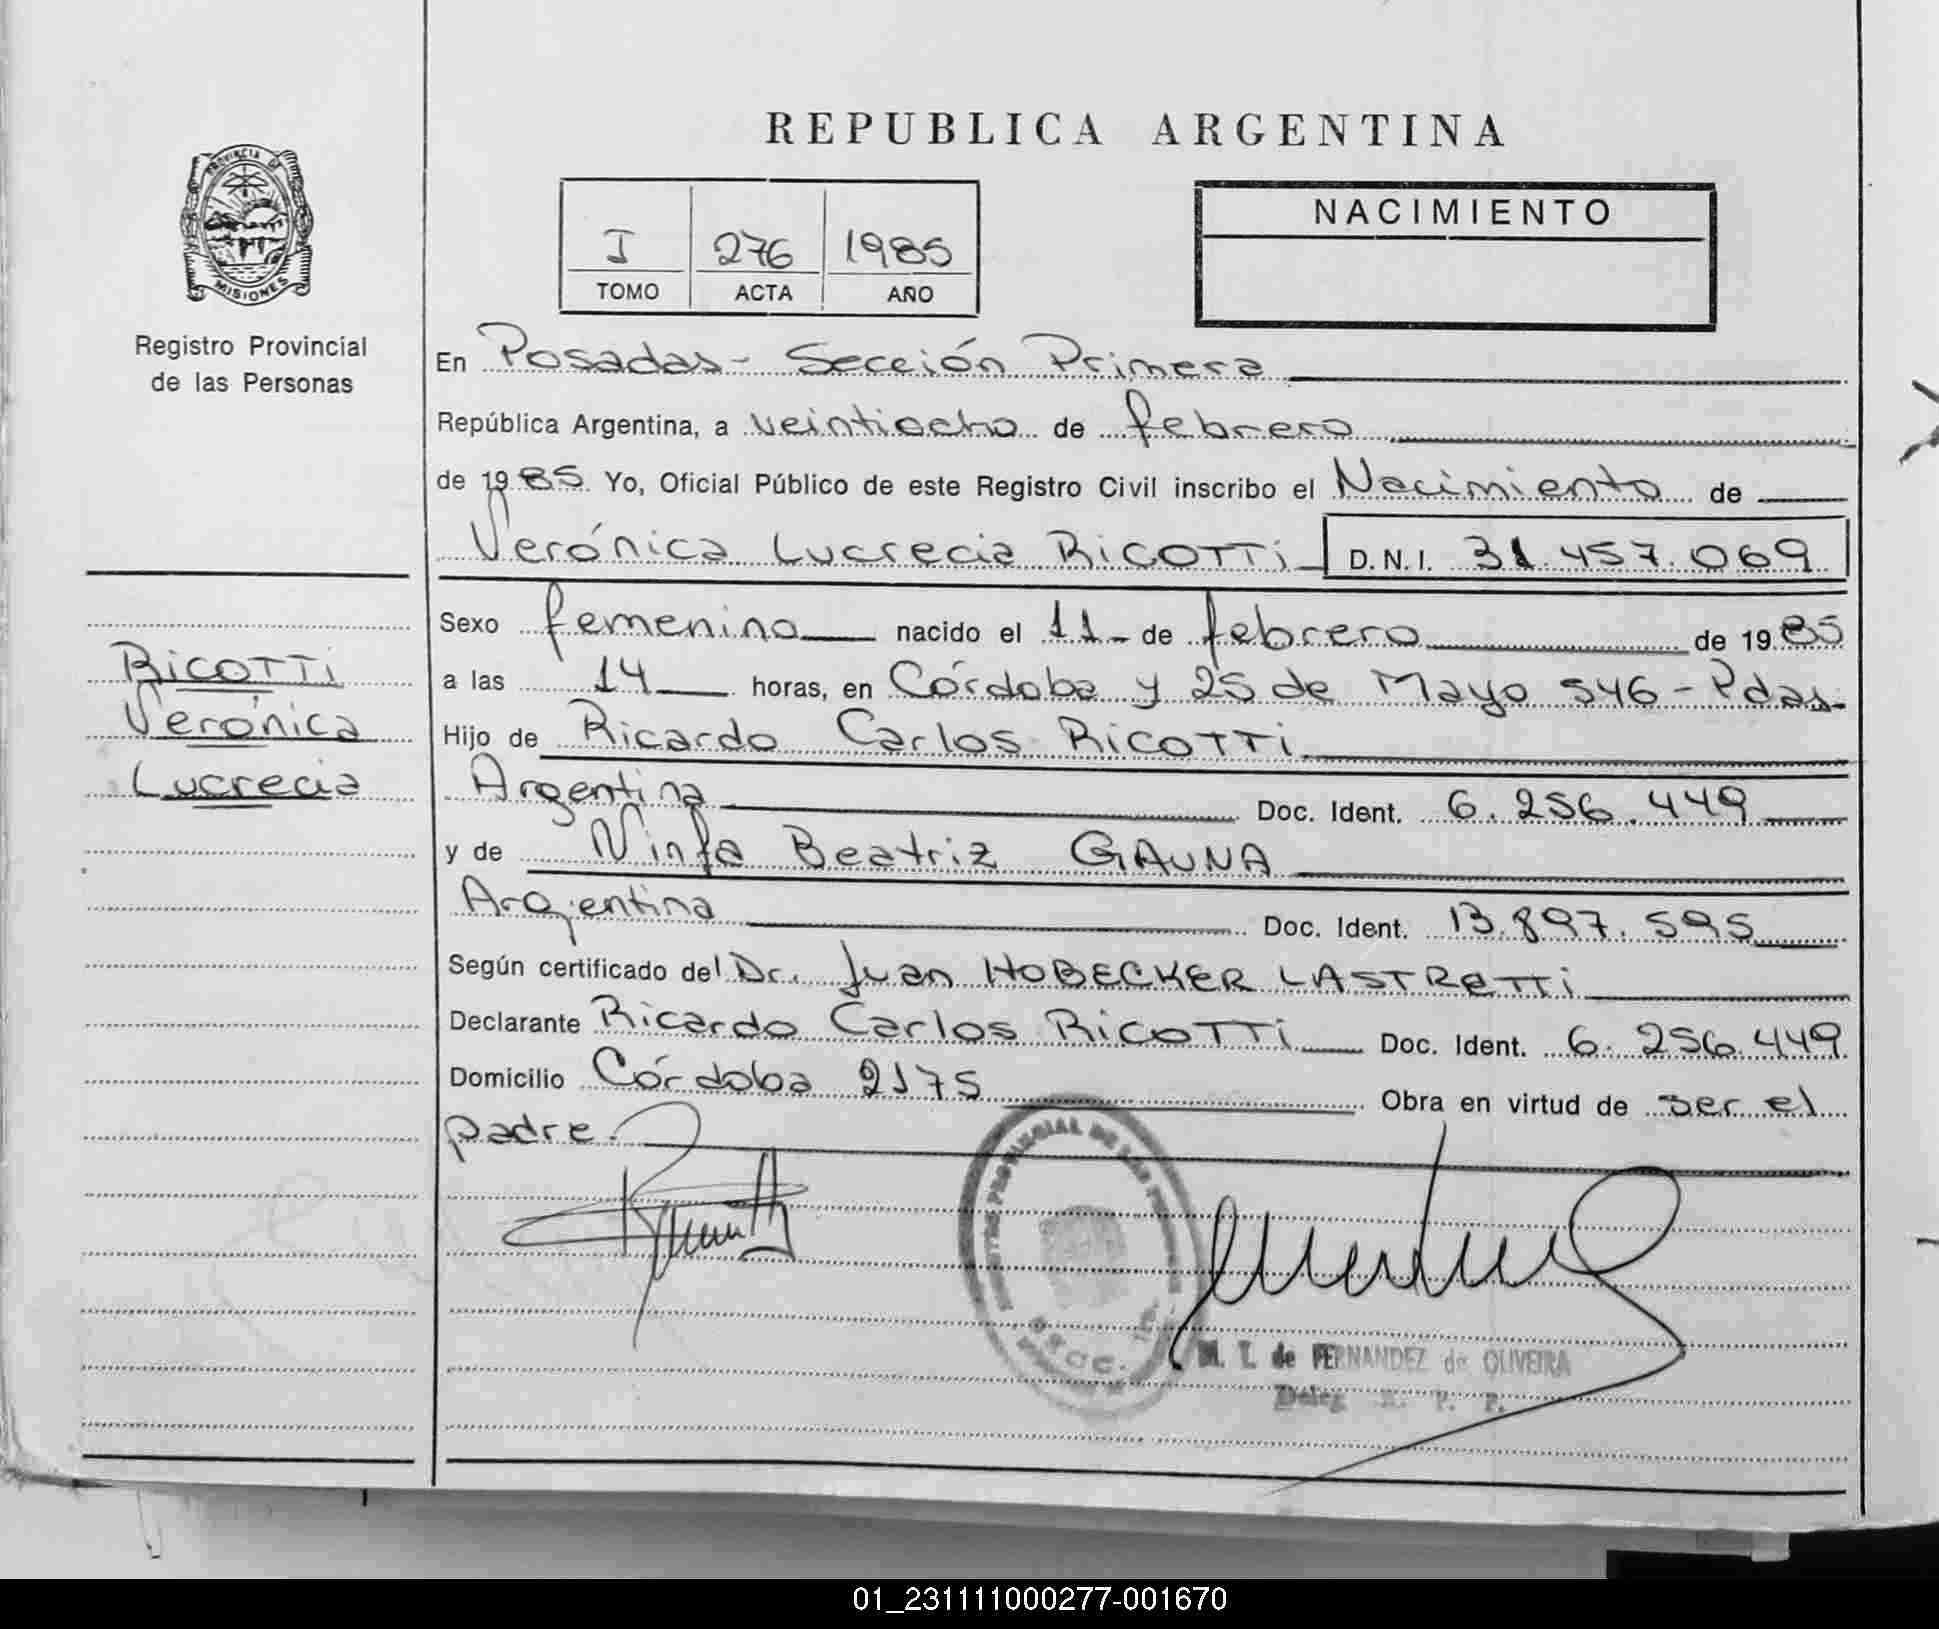 REPUBLICA ARGENTINA
PROVINCIA DE
MISIONES
Registro Provincial
de las Personas
I 276 1985
TOMO ACTA AÑO
NACIMIENTO
En Posadas - Sección Primera
República Argentina, a veintiocho de febrero
de 1985 Yo, Oficial Público de este Registro Civil inscribo el Nacimiento de
Verónica Lucrecia RICOTTI D.N.I. 31.457.069
Sexo femenino nacido el 11 - de febrero de 1985
a las 14 horas, en Córdoba y 25 de Mayo 546 - Pdas.
Hijo de Ricardo Carlos RICOTTI
Argentina Doc. Ident. 6.256.449
y de Ninfa Beatriz GAUNA
Argentina Doc. Ident. 13.897.595
Según certificado del Dr. Juan HOBECKER LASTRETTI
Declarante Ricardo Carlos RICOTTI Doc. Ident. 6.256.449
Domicilio Córdoba 2175 Obra en virtud de ser el
padre.
RICOTTI
Verónica
Lucrecia
M. T. de FERNANDEZ de OLIVEIRA
Deleg. R. P. P.
01_231111000277-001670